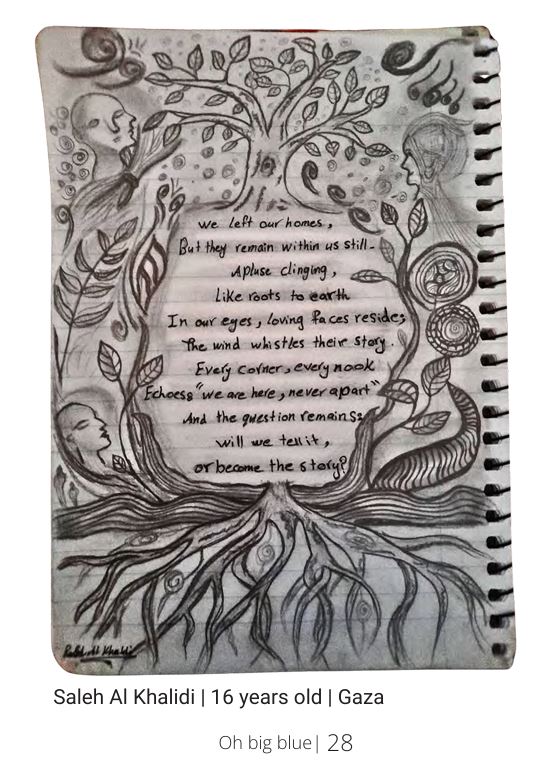 we left our homes,
But they remain within us still-
Apluse clinging,
Like roots to earth
In our eyes, loving faces resides
The wind whistles their story.
Every corner, every nook
Echoess "we are here, never apart"
And the question remainSs
will we tell it,
or become the story?
Al Khalidi
Saleh Al Khalidi | 16 years old | Gaza
Oh big blue| 28